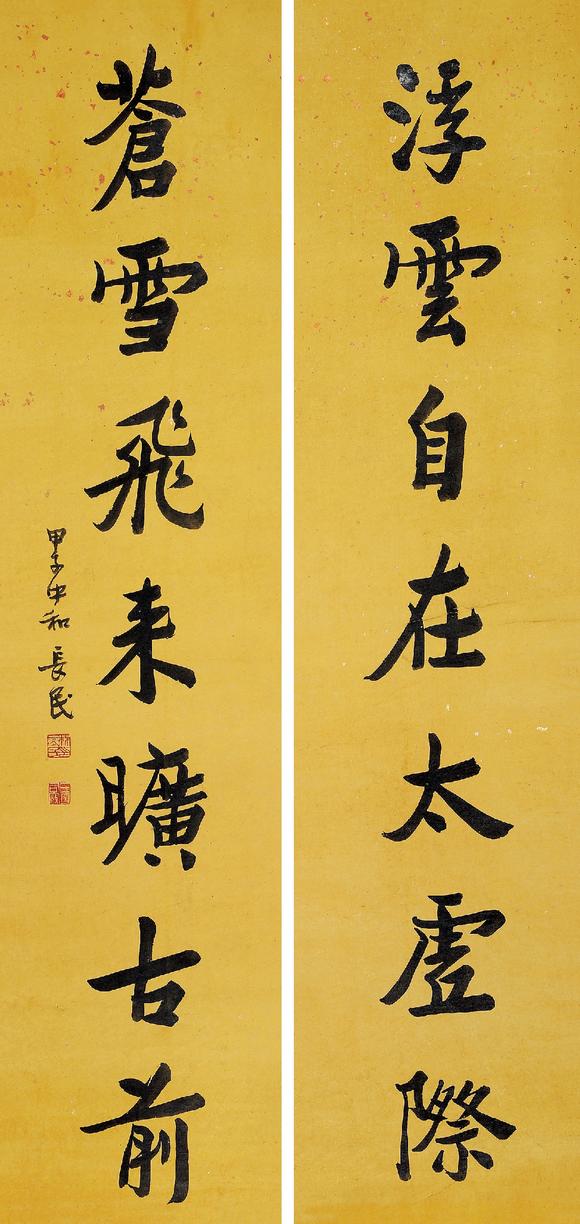 浮雲自在太虛際
蒼雪飛来曠古前
甲子中和 長民